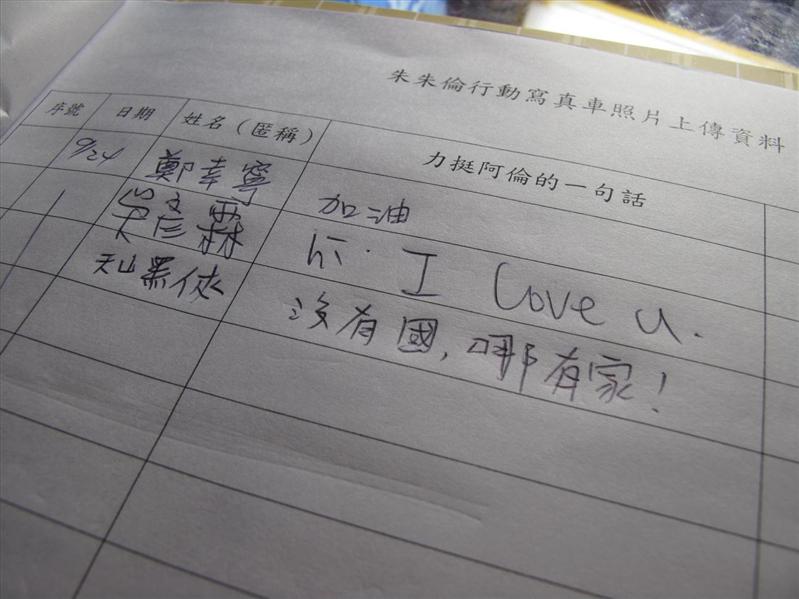 朱朱倫行動寫真車照片上傳資料
序號 日期 姓名（匿稱） 力挺阿倫的一句話
9/24 鄭幸寧 加油
吳彥霖 hi. I love u.
天山黑俠 沒有國,哪有家!